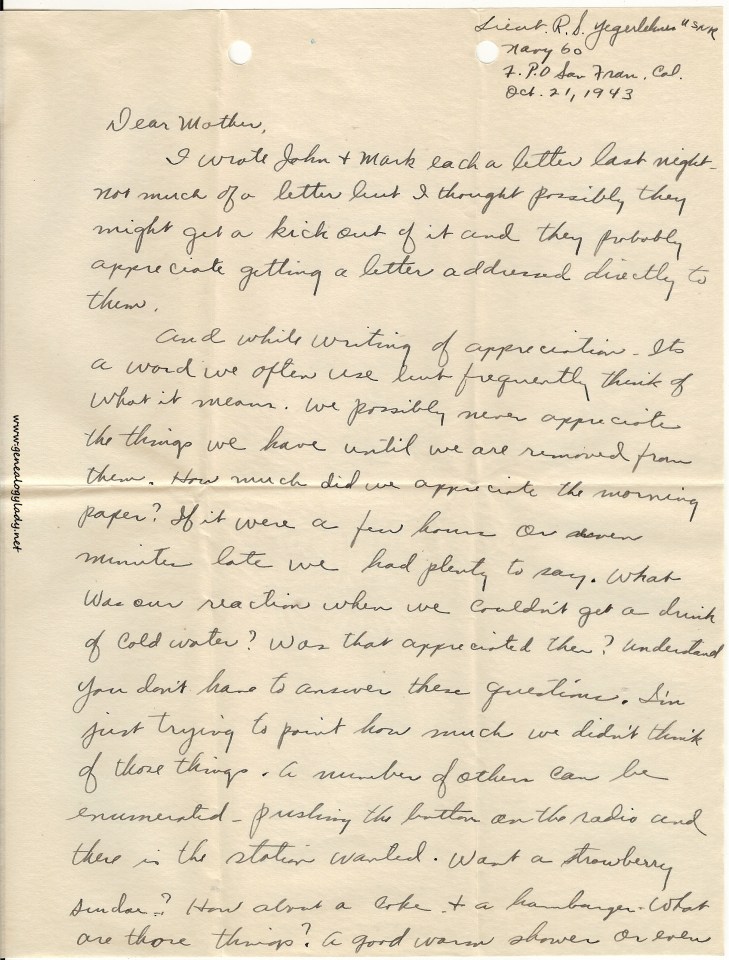 Lieut. R. S. Yegerlehner USNR
Navy 60
F.P.O San Fran, Cal.
Oct. 21, 1943
Dear Mother,
I wrote John + Mark each a letter last night -
not much of a letter but I thought possibly they
might get a kick out of it and they probably
appreciate getting a letter addressed directly to
them.
And while writing of appreciation - Its
a word we often use but frequently think of
what it means. We possibly never appreciate
the things we have until we are removed from
them. How much did we appreciate the morning
paper? If it were a few hours or even
minutes late we had plenty to say. What
was our reaction when we couldn't get a drink
of cold water? Was that appreciated then? Understand
you don't have to answer these questions. I'm
just trying to point how much we didn't think
of those things. A number of others can be
enumerated - pushing the button on the radio and
there is the station wanted. Want a strawberry
sundae? How about a coke + a hamburger. What
are those things? A good warm shower or even
www.genealogylady.net